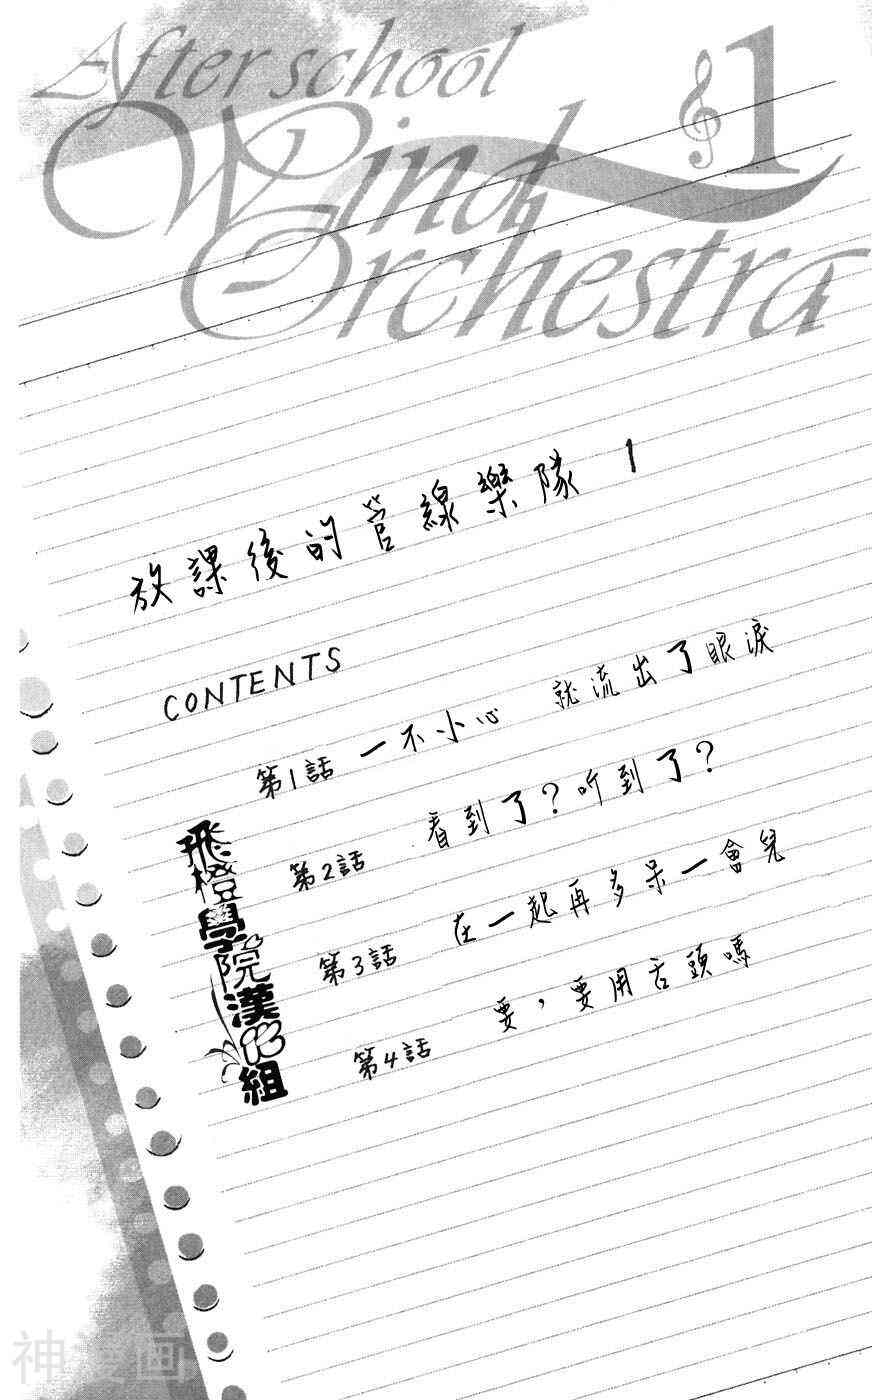 After school
Wind
Orchestra
1
放課後的管線樂隊 1
CONTENTS
第1話 一不小心 就流出了眼淚
第2話 看到了?听到了?
第3話 在一起再多呆一會兒
第4話 要，要用舌頭嗎
飛橙學院漢化組
神漫画